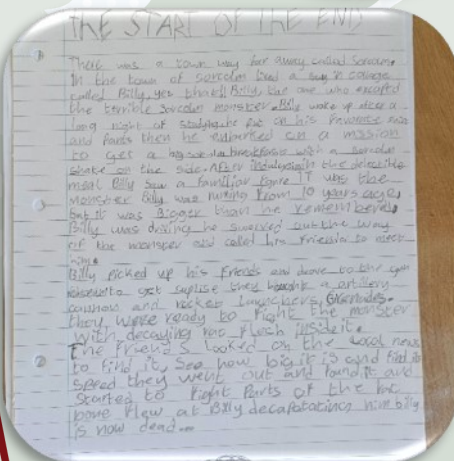 THE START OF THE END
There was a town way far away called Sorcolm.
In the town of sorcolm lived a guy in college
called Billy, yes that Billy, the one who escaped
the terrible sorcolm monster. Billy woke up after a
long night of studying he put on his favourite
and pants then he embarked on a mission
to get a big breakfast with a sorcolm
shake on the side. After the delectible
meal Billy saw a familiar figure IT was the
monster Billy was running from 10 years ago,
but it was Bigger than he remembered.
Billy was driving he swerved out the way
of the monster and called his friends to meet
him.
Billy picked up his friends and drove to the gun
to get they bought a artillery
cannon and rocket launchers, Grenades.
they were ready to fight the monster
with decaying rat flesh inside it.
The friend's looked on the local news
to find it, see how big it is and find its
speed they went out and found it and
started to fight Parts of the
bone flew at Billy decapatating him billy
is now dead...